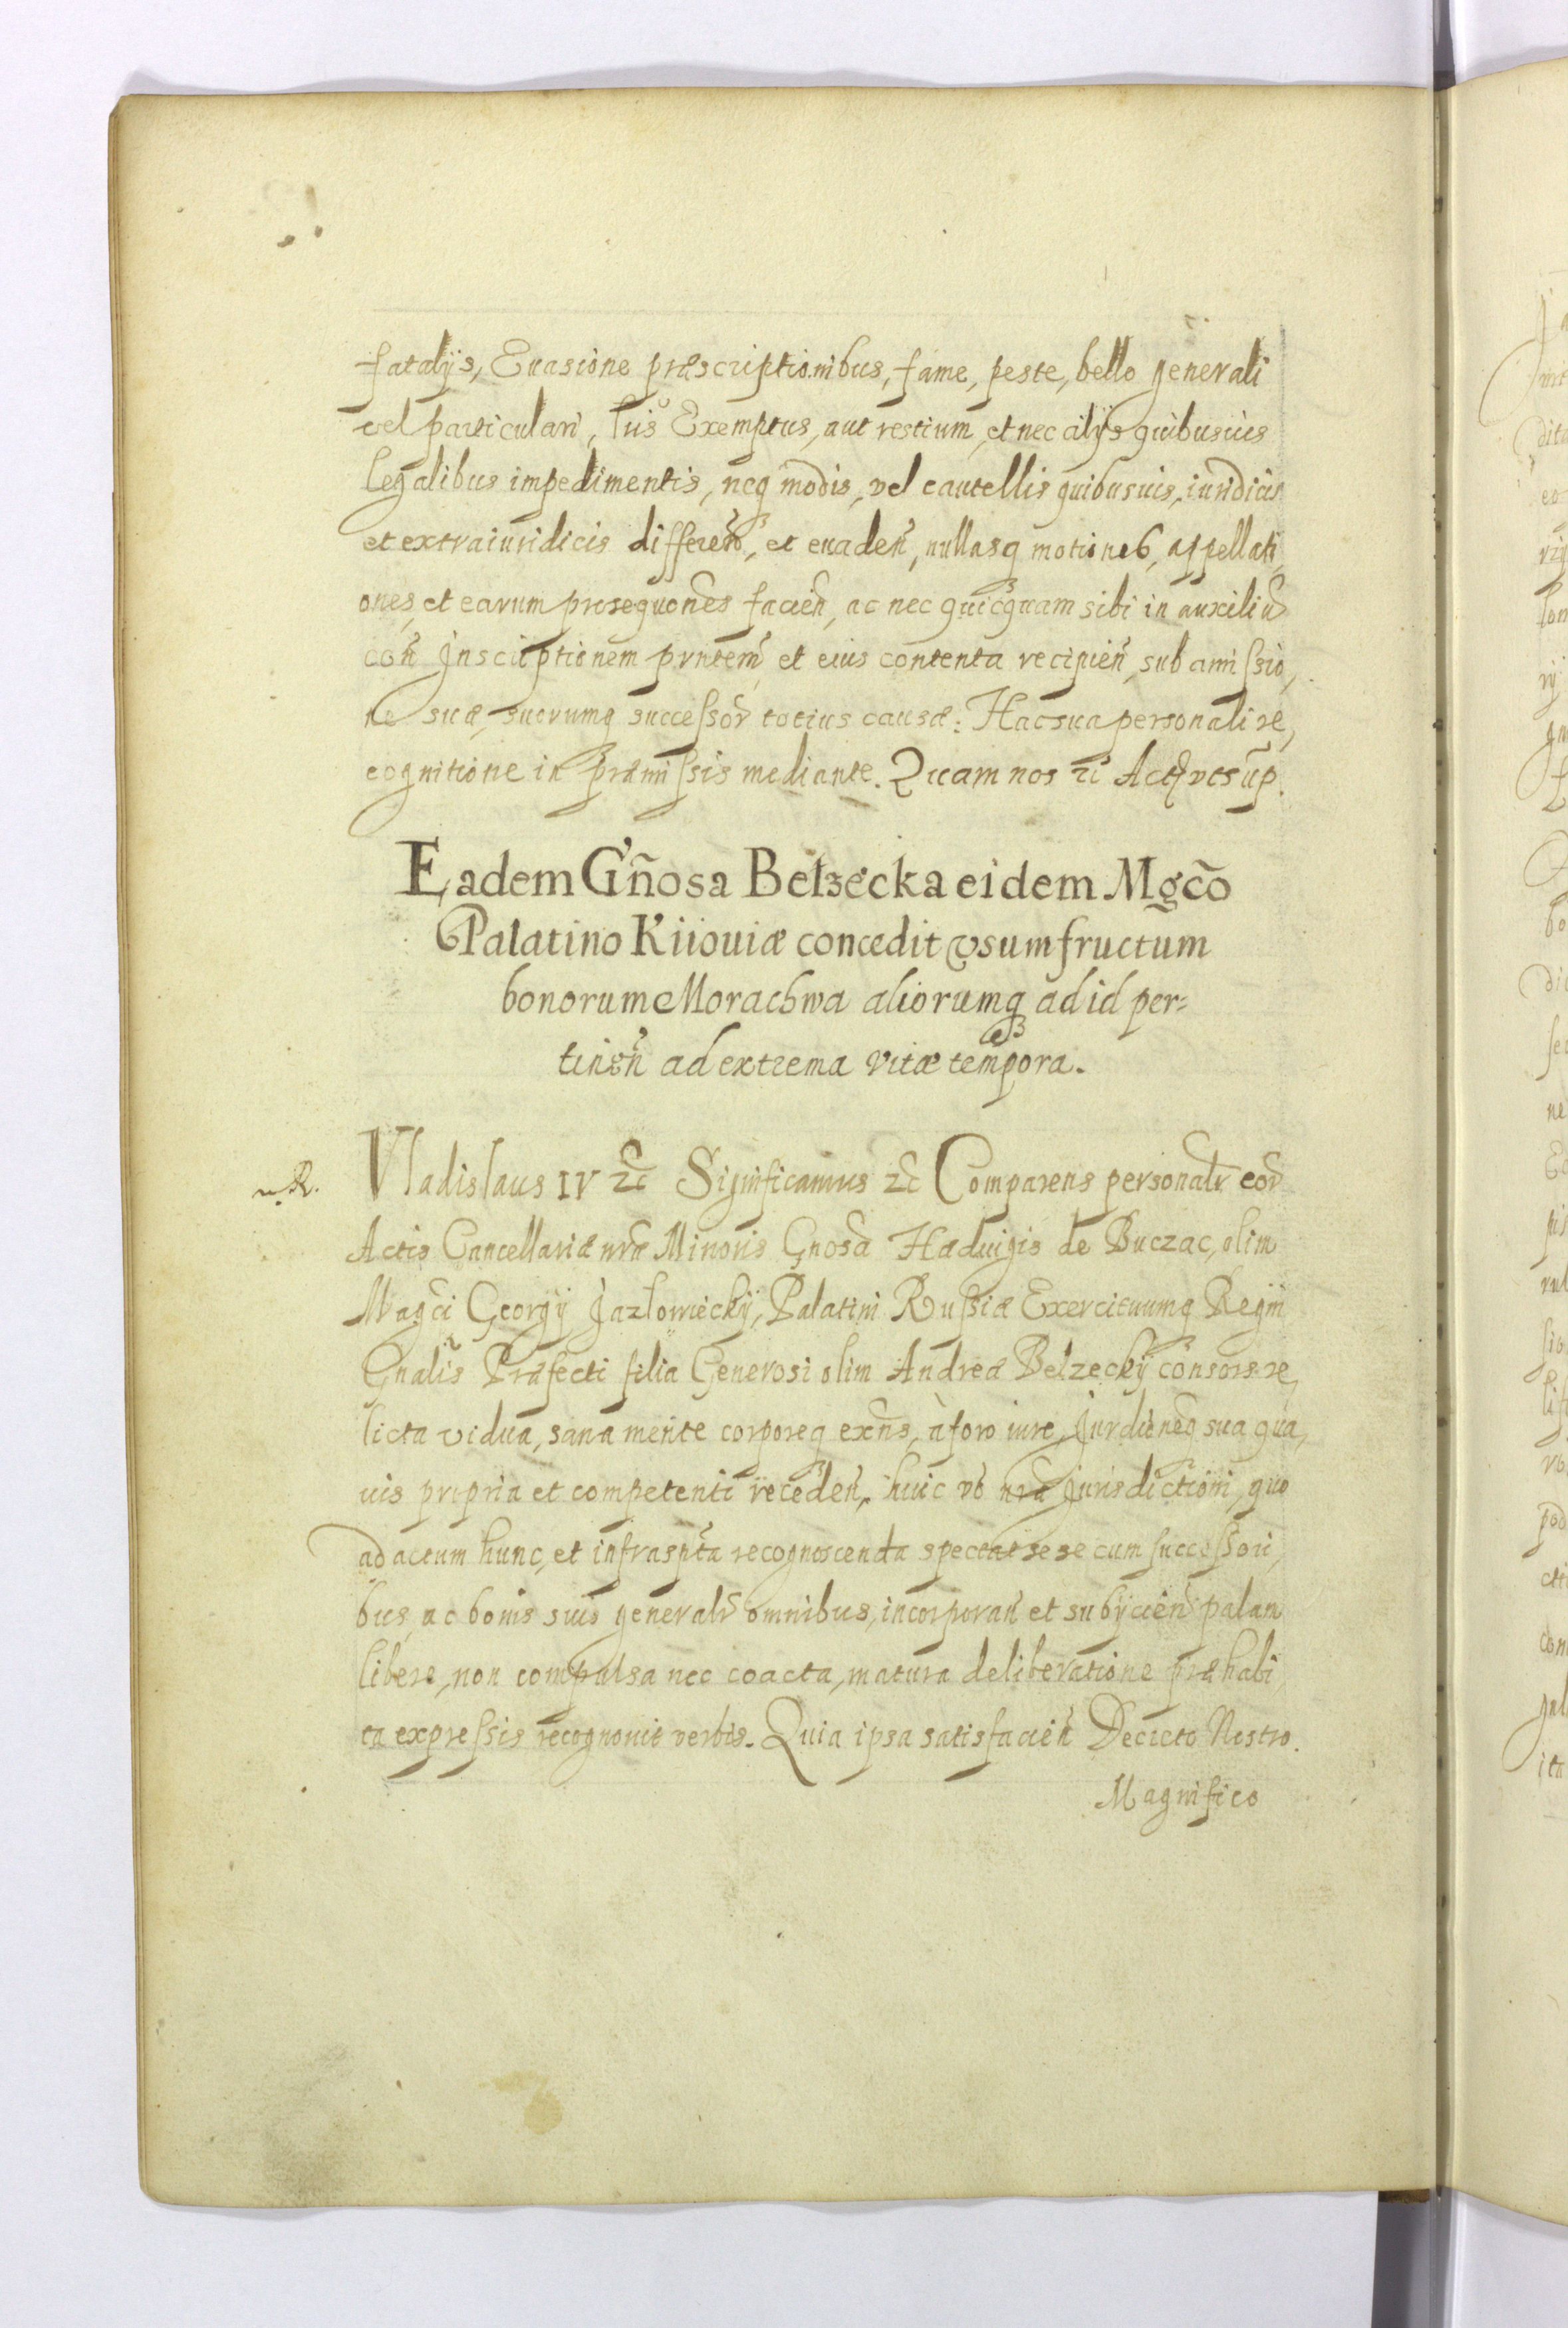 fatalijs, Euasione præscriptionibus, fame, peste, bello generali
vel particulari, suis Exemptus, aut restium, et nec alijs quibusuis
legalibus impedimentis, neq modis, vel cautellis quibusuis, iuridicis
et extraiuridicis differeñ, et euadeñ, nullasq motiones, appellati,
ones, et earum prosequones facieñ, ac nec quicquam sibi in auxiliũ
coñ Jnsciptionem prntem et eius contenta recipieñ, sub amissio,
ne suæ, suorumq successor totius causæ: Hac sua personali re,
cognitione in præmissis mediante. Quam nos ꝛc Actꝫ vt sup.
Eadem Gñosa Bełzecka eidem Mgcõ
Palatino Kiiouiæ concedit vsumfructum
bonorum Morachwa aliorumq ad id per=
tineñ ad extrema vitæ tempora.
Vladislaus IV ꝛc Significamus ꝛc Comparens personalr cor
Actis Cancellariæ nræ Minoris Gnosa Hæduigis de Buczac, olim
Magci Georgij Jazłowieckij, Palatini Russiæ Exercituumq Regni
Gnalis Præfecti filia Generosi olim Andreæ Bełzeckij consors re,
licta vidua, sana mente corporeq exns, à foro iure, Jurdioneq sua qua,
uis propria et competenti recedeñ, huic vo nræ Jurisdictioni, quo
ad actum hunc, et infraspta recognoscenda spectat sese cum successori,
bus, ac bonis suis generalr omnibus, incorporañ et subijcieñ palam
libere, non compulsa nec coacta, matura deliberatione præhabi,
ta expressis recognouit verbis. Quia ipsa satisfacieñ Decreto Nostro.
Magnifico